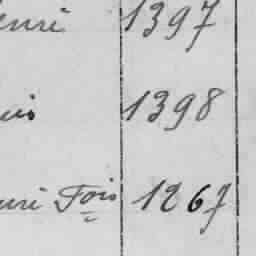 enri 1397
uis 1398
uri Fois 1267